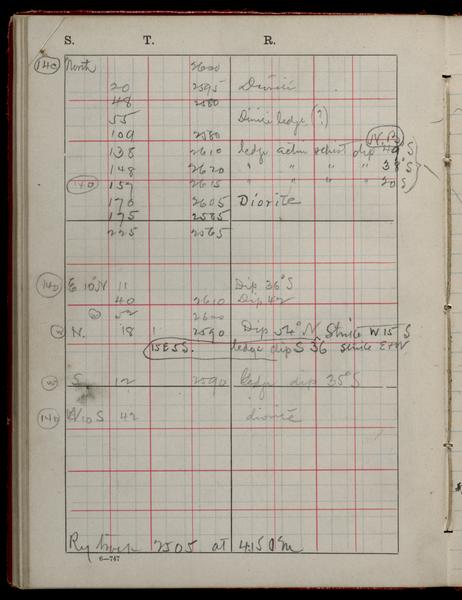 S. T. R.
140 North 2600
20 2595 Diorite
48 2580
55 Diorite ledge (?)
109 2580 N.B.
138 2610 ledge actin schist dip 40 S
148 2620 " " " " 38° S
140 157 2615 " " " " 20 S
170 2605 Diorite
175 2585
225 2565
140 E 10° N 11 Dip 36° S
40 2610 Dip 42
52 2600
N. 18 2590 Dip 54° N Strike W 15 S
15 E 5 S. ledge dip S 36 strike E + W
S 12 2590 ledge dip 35° S
140 W 10 S 42 diorite
Ry 2505 at 4.15 P.M
6—747